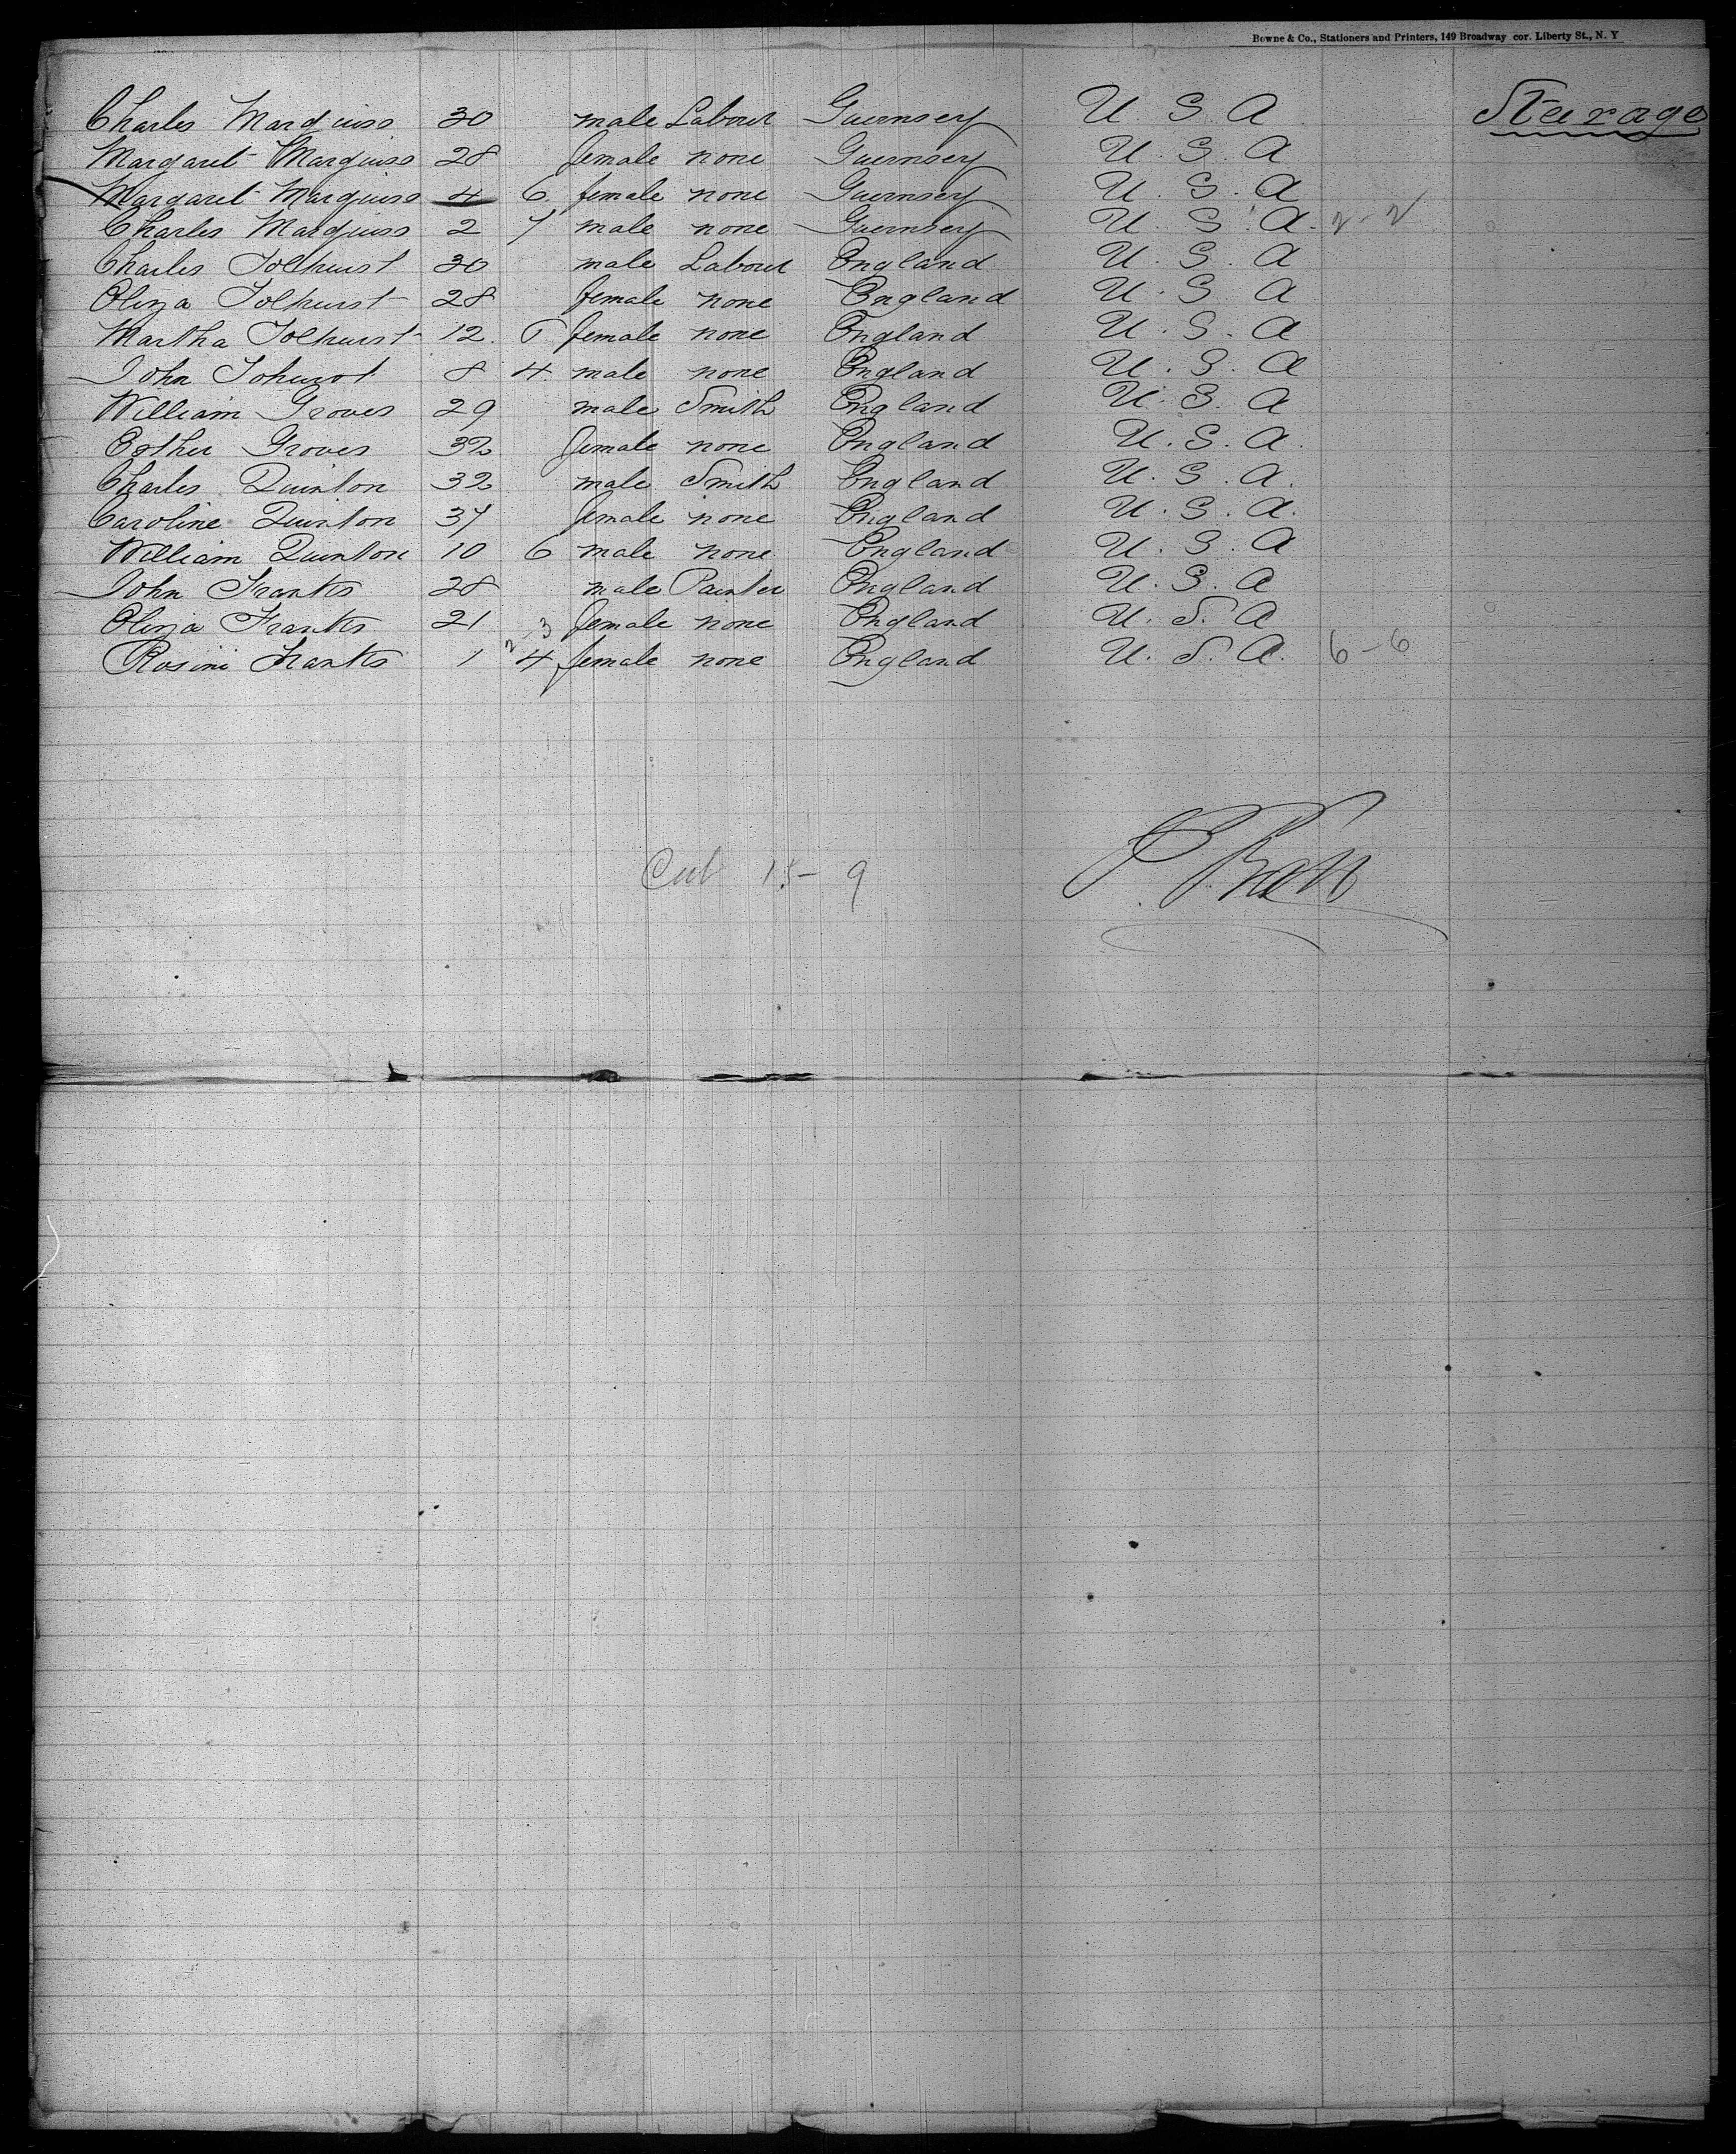 Bowne & Co., Stationers and Printers, 149 Broadway cor. Liberty St., N. Y
Charles Marquiss 30 male Labour Guernsey U. S. A Stearage
Margaret Marquiss 28 female none Guernsey U. S. A
Margaret Marquiss 4 6. female none Guernsey U. S. A
Charles Marquiss 2 7 male none Guernsey U. S. A. 2-2
Charles Tolhurst 30 male Labour England U. S. A
Eliza Tolhurst 28 female none England U. S. A
Martha Tolhurst 12. female none England U. S. A
John Tohurst 8 4. male none England U. S. A
William Groves 29 male Smith England U. S. A
Esther Groves 32 female none England U. S. A.
Charles Quinton 32 male Smith England U. S. A.
Caroline Quinton 37 female none England U. S. A.
William Quinton 10 6 male none England U. S. A
John Franks 28 male Painter England U. S. A
Eliza Franks 21 female none England U. S. A
2-3
Rosini Franks 1 4 female none England U. S. A. 6-6
15-9